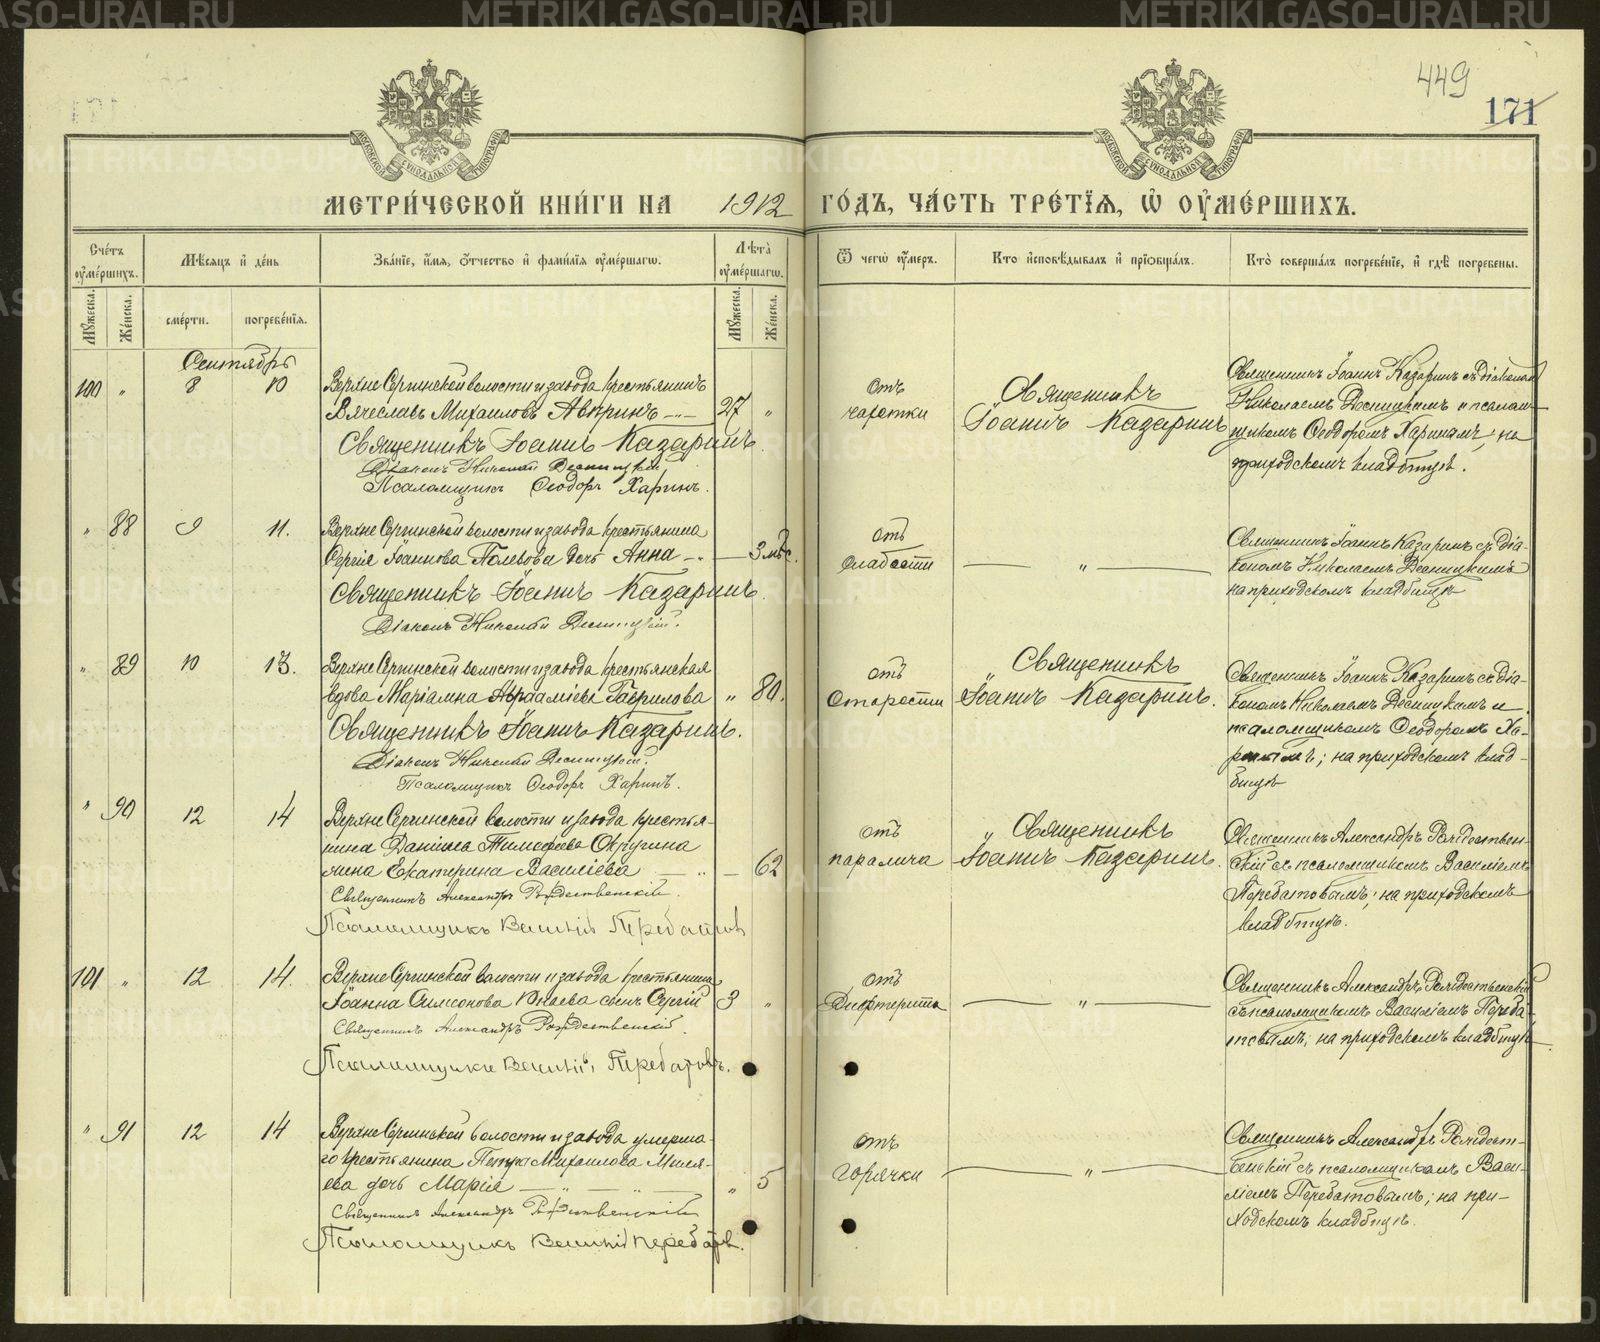 449
171
МЕТРИ́ЧЕСКОЙ КНИ́ГИ НА 1912 ГО́ДЪ, ЧА́СТЬ ТРЕ́ТІЯ, Ѽ ОУ҆МЕ́РШИХЪ.
Сче́тъ оу҆ме́ршихъ.
Мѣ́сяцъ и҆ де́нь
Зва́ніе, и҆́мя, о҆́тчество и҆ фами́лія оу҆ме́ршагѡ.
Лѣ́та оу҆ме́ршагѡ.
Ѿ чегѡ̀ оу҆́меръ.
Кто̀ и҆сповѣ́дывалъ и҆ пріѡбща́лъ.
Кто̀ соверша́лъ погребе́ніе, и҆ гдѣ̀ погребены̀.
Мꙋ́жеска.
Же́нска.
сме́рти.
погребе́нія.
Мꙋ́жеска.
Же́нска.
Сентябрь
100 " 8 10
Верхне Сергинской волости и завода крестьянинъ
Вячеславъ Михаиловъ Аверинъ 27 "
Священникъ Іоаннъ Казаринъ.
Діаконъ Николай Десницкій
Псаломщикъ Ѳеодоръ Харинъ.
отъ
чахотки
Священникъ
Іоаннъ Казаринъ
Священникъ Іоаннъ Казаринъ съ діакономъ
Николаемъ Десницкимъ и псалом-
щикомъ Ѳеодоромъ Харинымъ; на
приходскомъ кладбищѣ.
" 88 9 11.
Верхне Сергинской волости и завода крестьянина
Сергія Іоаннова Полевова дочь Анна 3 мѣс.
Священникъ Іоаннъ Казаринъ.
Діаконъ Николай Десницкій.
отъ
слабости
"
Священникъ Іоаннъ Казаринъ съ діа-
кономъ Николаемъ Десницкимъ
на приходскомъ кладбищѣ
" 89 10 13.
Верхне Сергинской волости и завода крестьянская
вдова Маріамна Авраамiева Гаврилова " 80.
Священникъ Іоаннъ Казаринъ.
Діаконъ Николай Десницкій.
Псаломщикъ Ѳеодоръ Харинъ.
отъ
старости
Священникъ
Іоаннъ Казаринъ.
Священникъ Іоаннъ Казаринъ съ діа-
кономъ Николаемъ Десницкимъ и
псаломщикомъ Ѳеодоромъ Ха-
ринымъ; на приходскомъ клад-
бищѣ
" 90 12 14
Верхне Сергинской волости и завода крестья-
нина Даніила Тимофеева
жена Екатерина Василіева 62
Священникъ Александръ Рождественскій.
Псаломщикъ Василій Перебатовъ
отъ
паралича
Священникъ
Іоаннъ Казаринъ.
Священникъ Александръ Рождествен-
скій съ псаломщикомъ Василіемъ
Перебатовымъ; на приходскомъ
кладбищѣ.
101 " 12 14.
Верхне Сергинской волости и завода крестьянина
Іоанна Симеонова сынъ Сергій 3 "
Священникъ Александръ Рождественскій.
Псаломщикъ Василій Перебатовъ.
отъ
дифтерита
"
Священникъ Александръ Рождественскій
съ псаломщикомъ Василіемъ Переба-
товымъ; на приходскомъ кладбищѣ
" 91 12 14
Верхне Сергинской волости и завода умерша-
го крестьянина Петра Михаилова
дочь Марія " 5
Священникъ Александръ Рождественскій
Псаломщикъ Василій Перебатовъ.
отъ
горячки
"
Священникъ Александръ Рождест-
венскій съ псаломщикомъ Васи-
ліемъ Перебатовымъ; на при-
ходскомъ кладбищѣ.
METRIKI.GASO-URAL.RU